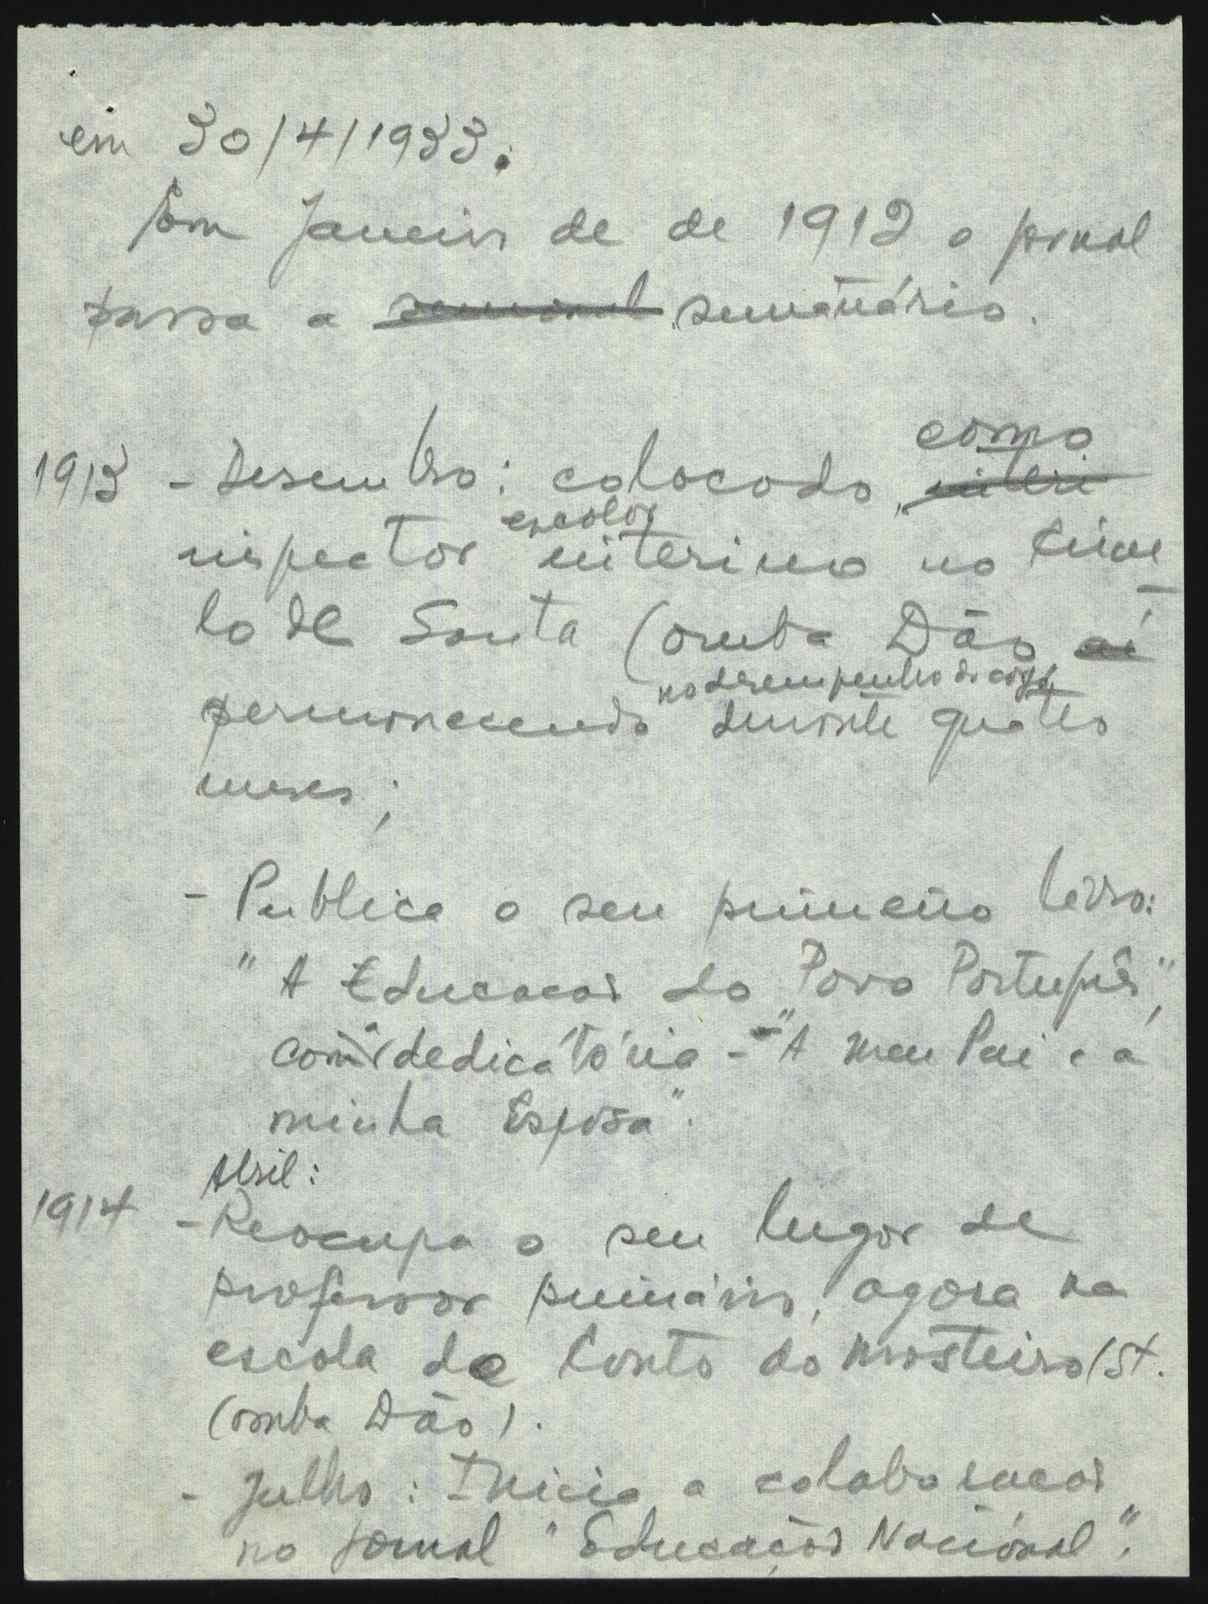 em 30/4/1933.
Em Janeiro de de 1912 o jornal
passa a semanal semanário.
como
1913 - Desembro: colocado, interi
escolar
inspector interino no Circu
lo de Santa Comba Dão aí
no desempenho do cargo
permanecendo durante quatro
meses;
- Publica o seu primeiro livro:
"A Educação do Povo Português",
com dedicatória - "A meu Pai e a
minha Esposa".
Abril:
1914 - Reocupa o seu lugar de
professor primário, agora na
escola de Couto do Mosteiro (St.
Comba Dão).
- Julho: Inicia a colaboração
no jornal "Educação Nacional".